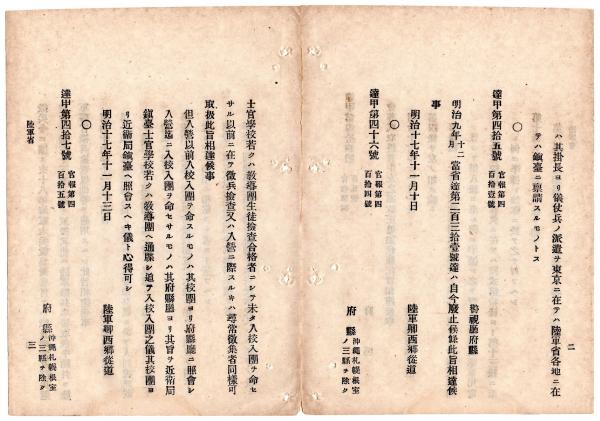 ハ其掛長ヨリ儀仗兵ノ派遣ヲ東京ニ在テハ陸軍省各地ニ在
テハ鎮臺ニ禀請スルモノトス
〇
達甲第四拾五號 官報第四百拾壹號
警視廳府縣
明治九年十二月當省達第二百三拾壹號達ハ自今廢止候條此旨相達候
事
明治十七年十一月十日
陸軍卿西郷從道
〇
達甲第四十六號 官報第四百拾四號
府縣 沖繩札幌根室ノ三縣ヲ除ク
二
士官學校若クハ敎導團生徒檢査合格者ニシテ未タ入校入團ヲ命セ
サル以前ニ在テ徴兵檢査又ハ入營ニ際スルキハ尋常徴集者同樣可
取扱此旨相達候事
但入營以前入校入團ヲ命スルモノハ其校團ヨリ府縣廳ニ照會シ
入營迄ニ入校入團ヲ命セサルモノハ其府縣廳ヨリ其旨ヲ近衛局
鎮臺士官學校若クハ敎導團ヘ通牒シ追テ入校入團之儀其校團ヨ
リ近衛局鎮臺ヘ照會スヘキ儀ト心得可シ
明治十七年十一月十三日
陸軍卿西郷從道
〇
達甲第四拾七號 官報第四百拾五號
府縣 沖繩札幌根室ノ三縣ヲ除ク
陸軍省
三